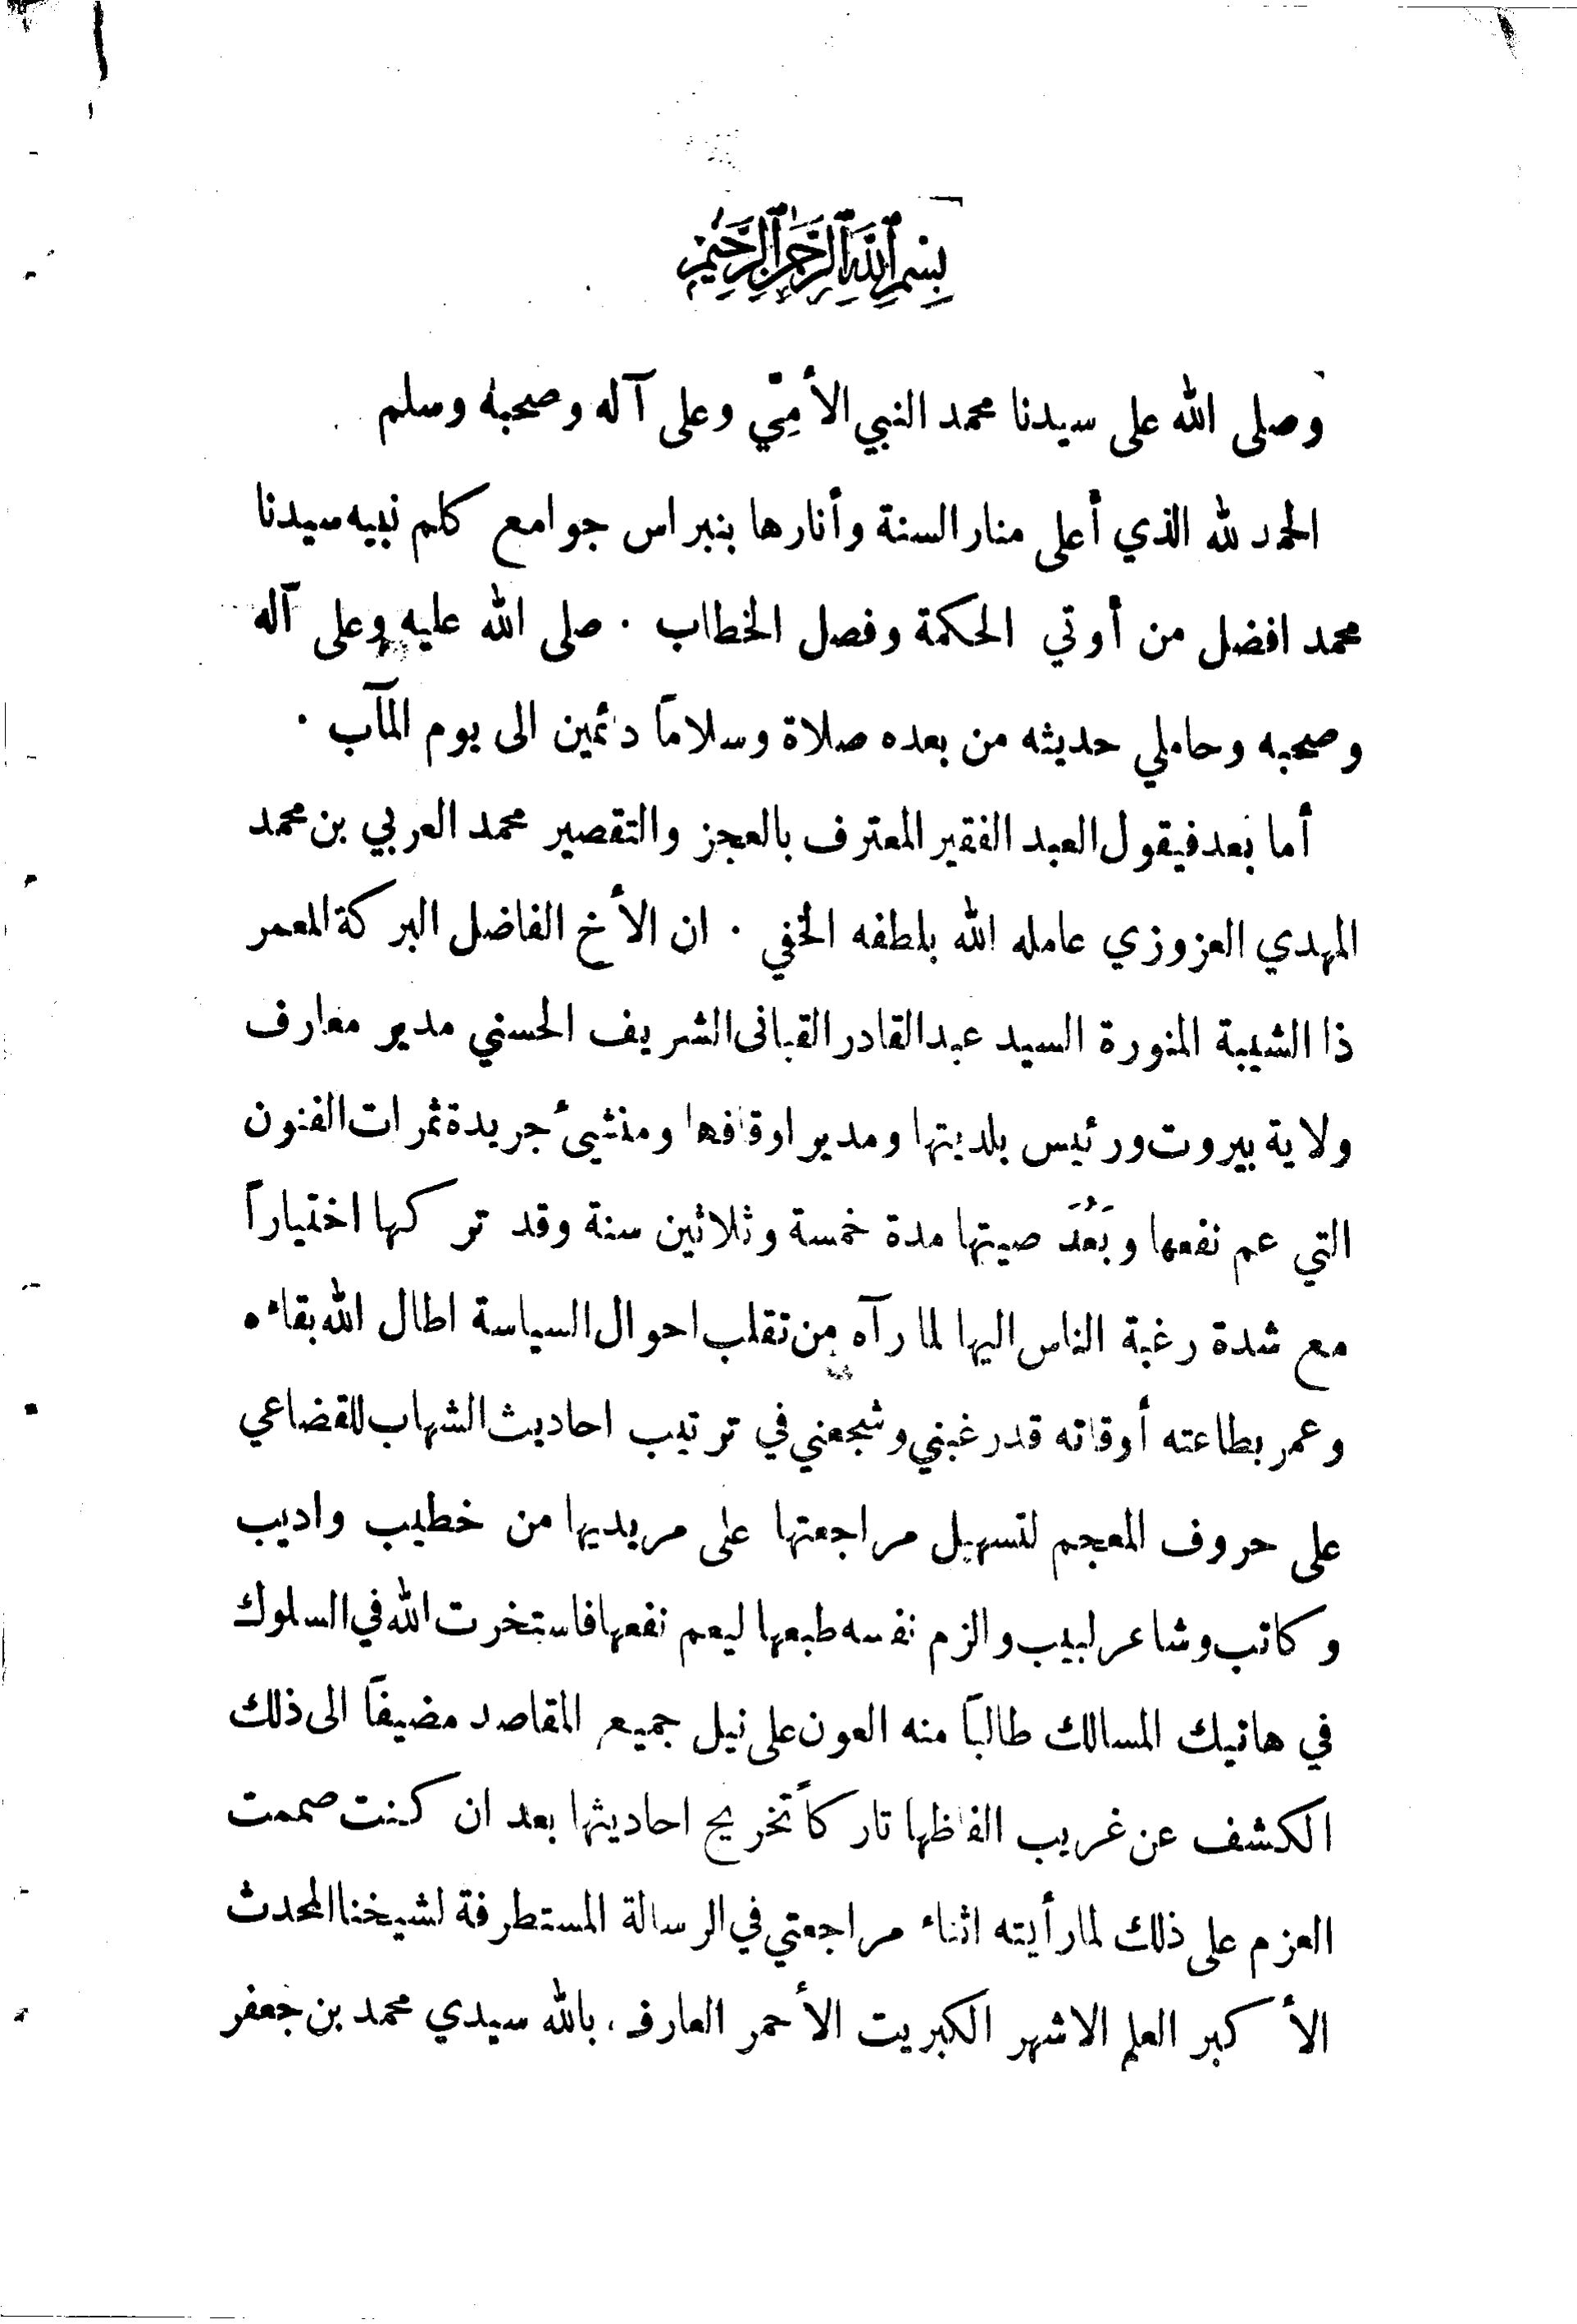 بِسْمِ ٱللَّهِ ٱلرَّحْمَنِ ٱلرَّحِيمِ
وصلى الله على سيدنا محمد النبي الأمِّي وعلى آله وصحبه وسلم
الحمد لله الذي أعلى منار السنة وأنارها بنبراس جوامع كلم نبيه سيدنا
محمد افضل من أوتي الحكمة وفصل الخطاب . صلى الله عليه وعلى آله
وصحبه وحاملي حديثه من بعده صلاة وسلاماً دائمين الى يوم المآب .
أما بعد فيقول العبد الفقير المعترف بالعجز والتقصير محمد العربي بن محمد
المهدي العزوزي عامله الله بلطفه الخفي . ان الأخ الفاضل البركة المعمر
ذا الشيبة المنورة السيد عبد القادر القباني الشريف الحسني مدير معارف
ولاية بيروت ورئيس بلديتها ومدير اوقافها ومنشئ جريدة ثمرات الفنون
التي عم نفعها وبَعُدَ صيتها مدة خمسة وثلاثين سنة وقد تركها اختياراً
مع شدة رغبة الناس اليها لما رآه من تقلب احوال السياسة اطال الله بقاءه
وعمر بطاعته أوقاته قد رغبني وشجعني في ترتيب احاديث الشهاب للقضاعي
على حروف المعجم لتسهيل مراجعتها على مريديها من خطيب واديب
وكاتب وشاعر لبيب والزم نفسه طبعها ليعم نفعها فاستخرت الله في السلوك
في هاتيك المسالك طالباً منه العون على نيل جميع المقاصد مضيفاً الى ذلك
الكشف عن غريب الفاظها تاركاً تخريج احاديثها بعد ان كنت صممت
العزم على ذلك لما رأيته اثناء مراجعتي في الرسالة المستطرفة لشيخنا المحدث
الأكبر العلم الاشهر الكبريت الأحمر العارف بالله سيدي محمد بن جعفر